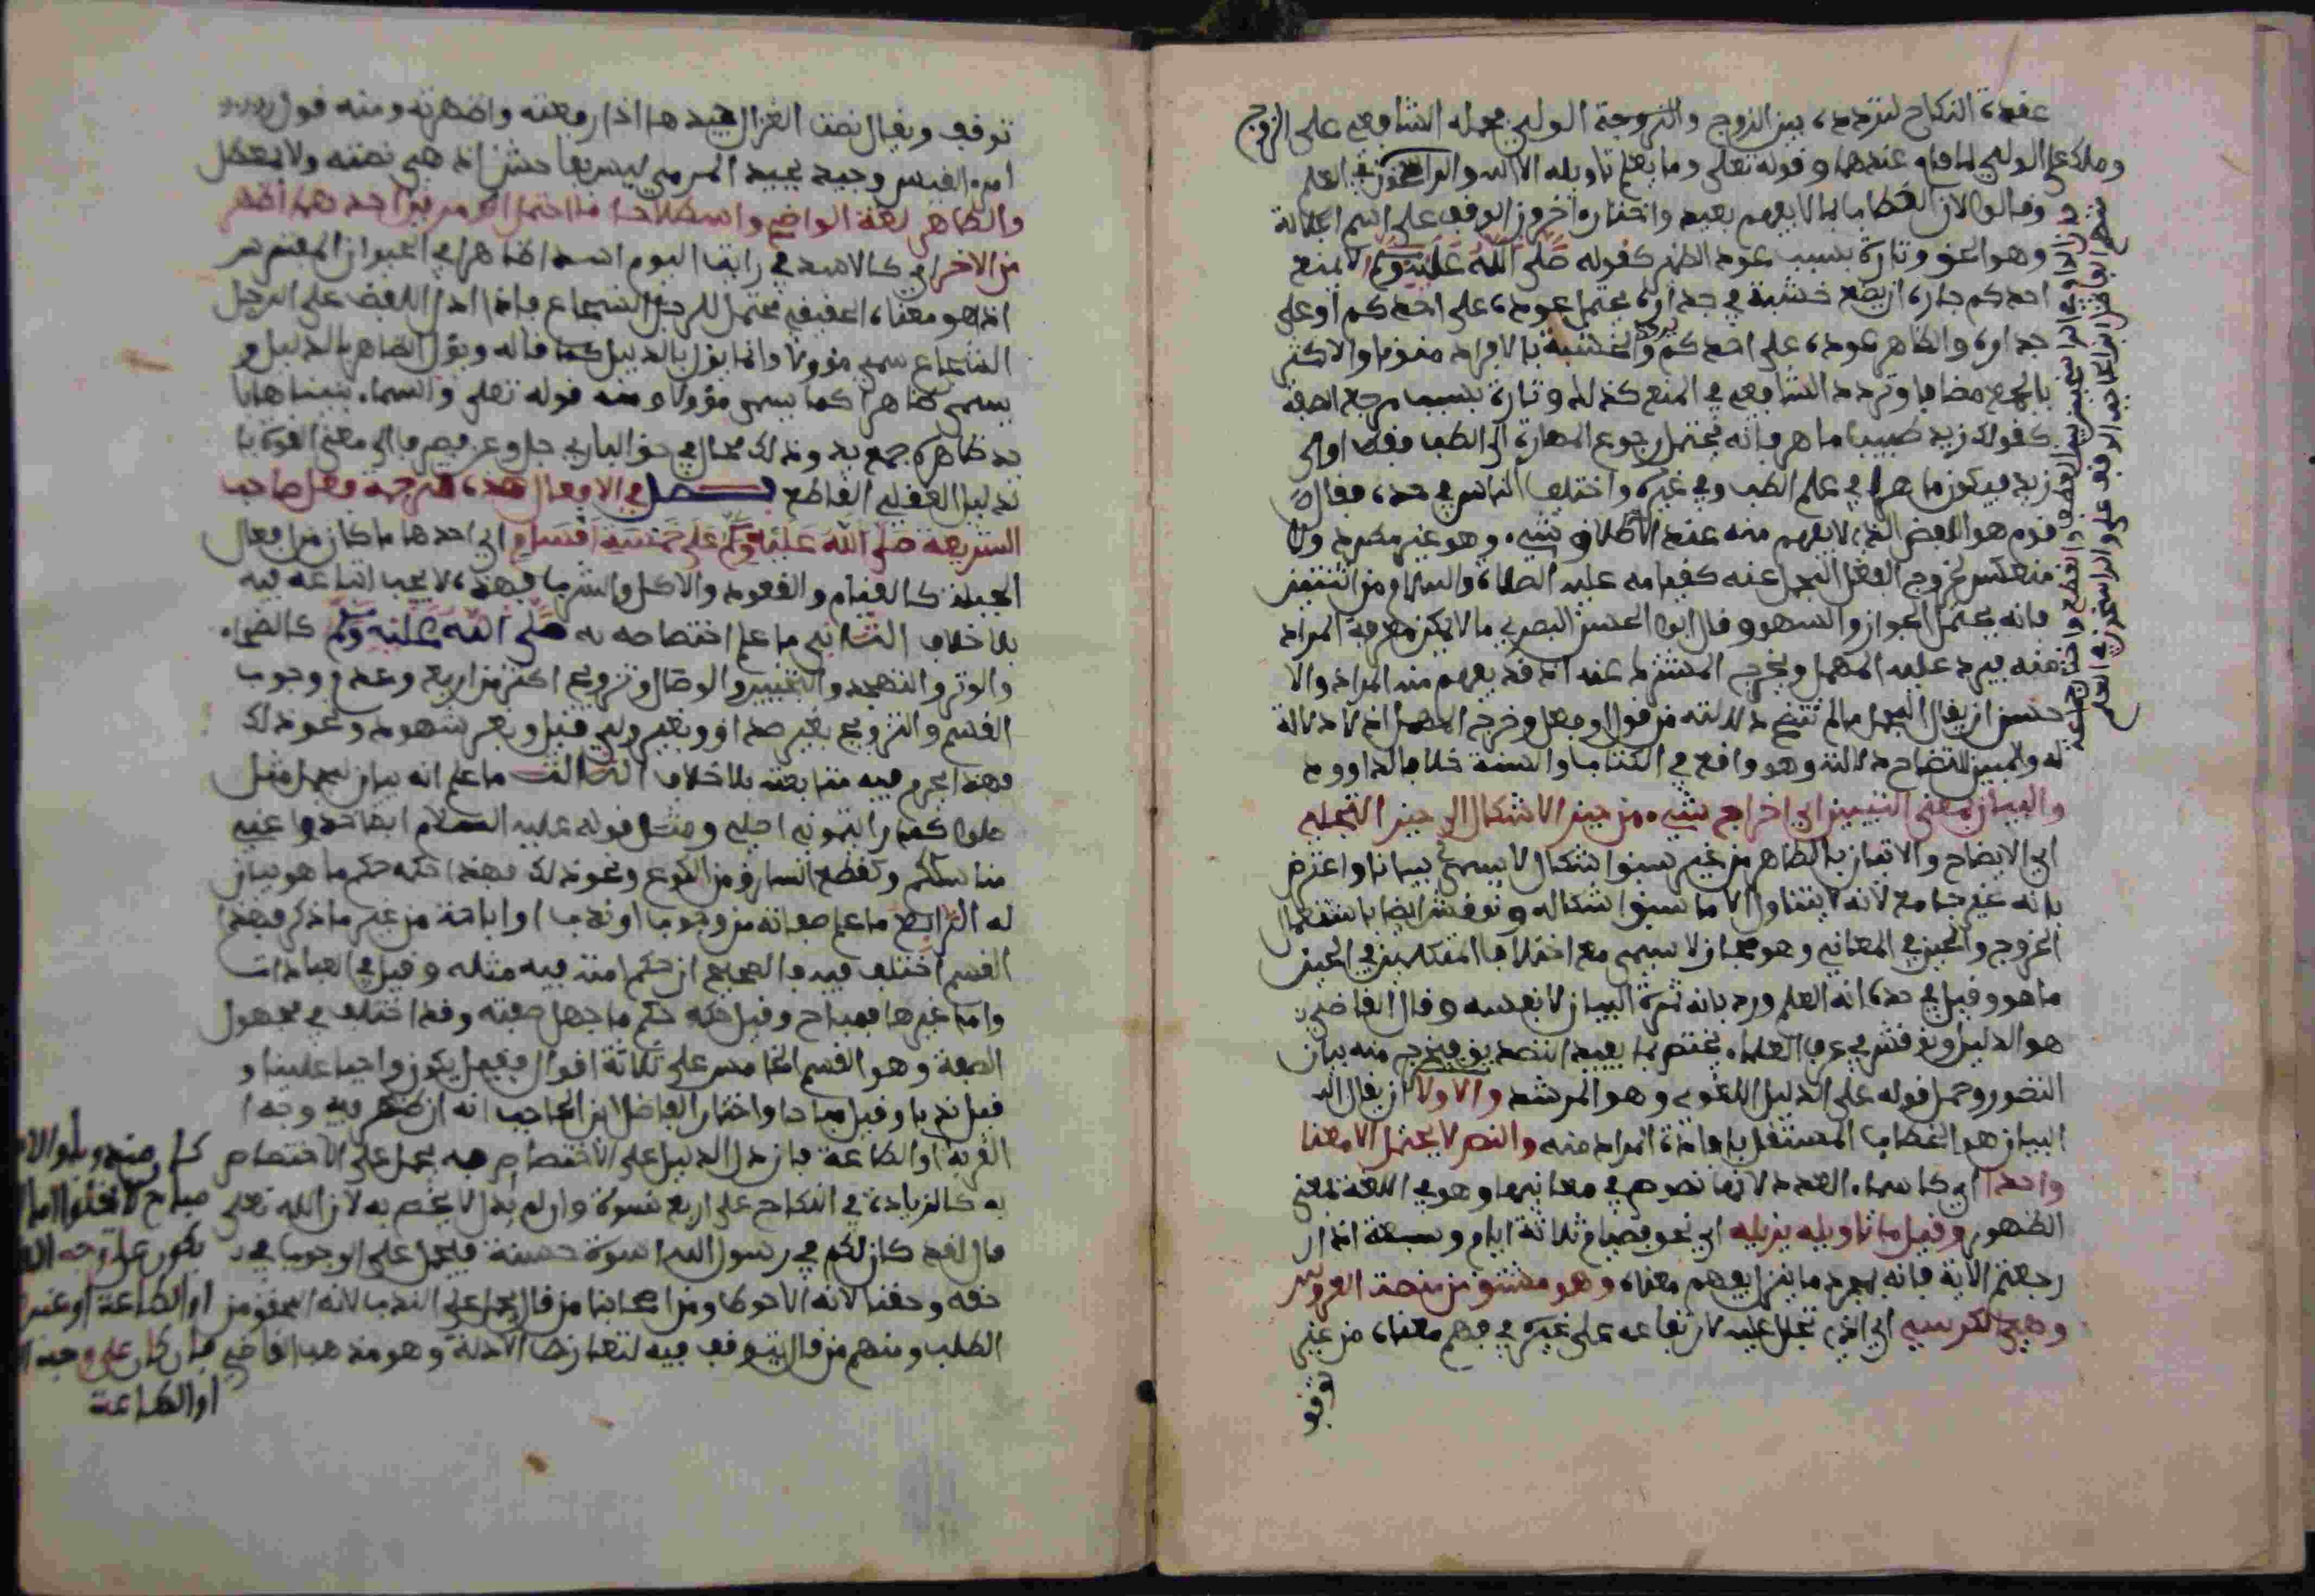 عقدة النكاح لتردده بين الزوج والزوجة الولي يحمله الشافعي على الزوج
وملك على الولي لما قام عندهما وقوله تعلى وما يعلم تاويله الا الله والراسخون في العلم
وقالوا لان الخطاب بما لا يفهم بعيد واختاره اخرون الوقف على اسم الجلالة
وهو الحق وتارة بسبب عود الظهر كقوله صلى الله عليه وسلم لا يمنع
احدكم جاره ان يضع خشبة في جداره يحتمل عوده على احدكم او على
جداره والظاهر عوده على احدكم والخشبة بالافراد منونا والاكثر
بالجمع مضافا وتردد الشافعي في المنع كذلك وتارة بسبب مرجع الصفة
كقولك زيد طبيب ماهر فانه يحتمل رجوع المهارة الى الطب فقط او الى
زيد فيكون ماهرا في علم الطب وفي غيره واختلف الناس في حده فقال
قوم هو اللفظ الذي لا يفهم منه عند الاطلاق شيء وهو غير مطرد ولا
منعكس لخروج الفعل المجمل عنه كقيامه عليه الصلاة والسلام من اثنتين
فانه يحتمل الجواز والسهو وقال ابو الحسن البصري ما لا يمكن معرفة المراد
منه فيرد عليه المهمل ويخرج المشترك عنه اذ قد يفهم منه المراد والا
حسن ان يقال المجمل ما لم تتضح دلالته من قول او فعل وخرج المهمل اذ لا دلالة
له والمبين لاتضاح دلالته وهو واقع في الكتاب والسنة خلافا لداوود
والبيان بمعنى التبيين اي اخراج شيء من حيز الاشكال الى حيز التجلي
اي الايضاح والاتيان بالظاهر من غير سبق اشكال لا يسمى بيانا واعترض
بانه غير جامع لانه لا يتناول الا ما سبق اشكاله ونوقش ايضا باستعمال
الخروج والحيز في المعاني وهو مجاز لا سيما مع اختلاف المتكلمين في الحيز
ما هو وقيل في حده انه العلم ورد بانه ثمرة البيان لا نفسه وقال القاضي
هو الدليل ونوقش في عرف العلماء يختص بما يفيد التصديق فيخرج منه بيان
التصور وحمل قوله على الدليل اللغوي وهو المرشد والاولى ان يقال ان
البيان هو الخطاب المستقل بافادة المراد منه والنص لا يحتمل الا معنا
واحدا اي كاسماء العدد لانها نصوص في معانيها وهو في اللغة بمعنى
الظهور وقيل ما تاويله تنزيله اي نحو فصيام ثلاثة ايام وسبعة اذا
رجعتم الاية فانه بمجرد ما ينزل يفهم معناه وهو مشتق من منصة العروس
وهي الكرسي اي الذي تجلى عليه لارتفاعه على غيره في فهم معناه من غير
توقف
توقف ويقال نصت الغزال جيدها اذا رفعته واظهرته ومنه قول
امرء القيس وجيد كجيد الريم ليس بفاحش اذا هي نصته ولا بمعطل
والظاهر لغة الواضح واصطلاحا ما احتمل امرين احدهما اظهر
من الاخر اي كالاسد في رايت اليوم اسدا ظاهرا في الحيوان المفترس
اذ هو معناه الحقيقي محتمل للرجل الشجاع فاذا حمل اللفظ على الرجل
الشجاع سمي مؤولا وانما يؤل بالدليل كما قاله ويؤل الظاهر بالدليل و
يسمى ظاهرا كما يسمى مؤولا ومنه قوله تعلى والسماء بنيناها با
يد ظاهره جمع يد وذلك محال في حق الباري جل وعز فيصرف الى معنى القوة با
لدليل العقلي القاطع فصل في الافعال هذه ترجمة فعل صاحب
الشريعة صلى الله عليه وسلم على خمسة اقسام اي احدها ما كان من افعال
الجبلة كالقيام والقعود والاكل والشرب فهذا لا يجب اتباعه فيه
بلا خلاف الثاني ما علم اختصاصه به صلى الله عليه وسلم كالضحى
والوتر والتهجد والتخيير والوصال وتزويج اكثر من اربع وعدم وجوب
القسم والتزويج بغير صداق وبغير ولي قيل وبغير شهود ونحو ذلك
فهذا يحرم فيه متابعته بلا خلاف الثالث ما علم انه بيان لمجمل مثل
صلوا كما رايتموني اصلي ومثل قوله عليه السلام ايضا خذوا عني
مناسككم وكقطع السارق من الكوع ونحو ذلك فهذا حكمه حكم ما هو بيان
له الرابع ما علم صفاته من وجوب او ندب او اباحة من غير ما ذكر فهذا
القسم اختلف فيه والصحيح ان حكم امته فيه مثله وقيل في العبادات
واما غيرها فمباح وقيل حكمه حكم ما جهل صفته وقد اختلف في مجهول
الصفة وهو القسم الخامس على ثلاثة اقوال فقيل يكون واجبا علينا و
قيل ندبا وقيل مباحا واختار الفاضل ابن الحاجب انه ان ظهر فيه وجه
القربة او الطاعة فان دل الدليل على الاختصاص به يحمل على الاختصاص
به كالزيادة في النكاح على اربع نسوة وان لم يدل لا يختص به لان الله تعلى
قال لقد كان لكم في رسول الله اسوة حسنة فيحمل على الوجوب في
حقه وحقنا لانه الاحوط ومن اصحابنا من قال يحمل على الندب لانه المحقق من
الطلب ومنهم من قال يتوقف فيه لتعارض الادلة وهو مذهب القاضي فان كان على وجه
او الطاعة